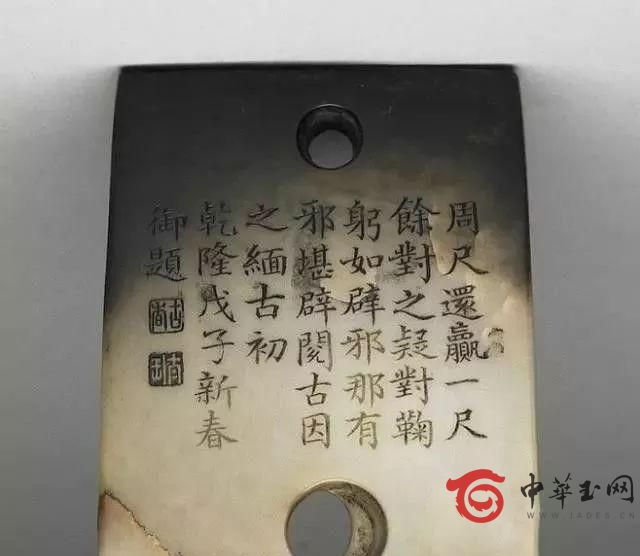 周尺還贏一尺
餘對之疑對鞠
躬如辟邪那有
邪堪辟閱古因
之緬古初
乾隆戊子新春
御題
中華玉网
WWW.JADES.CN